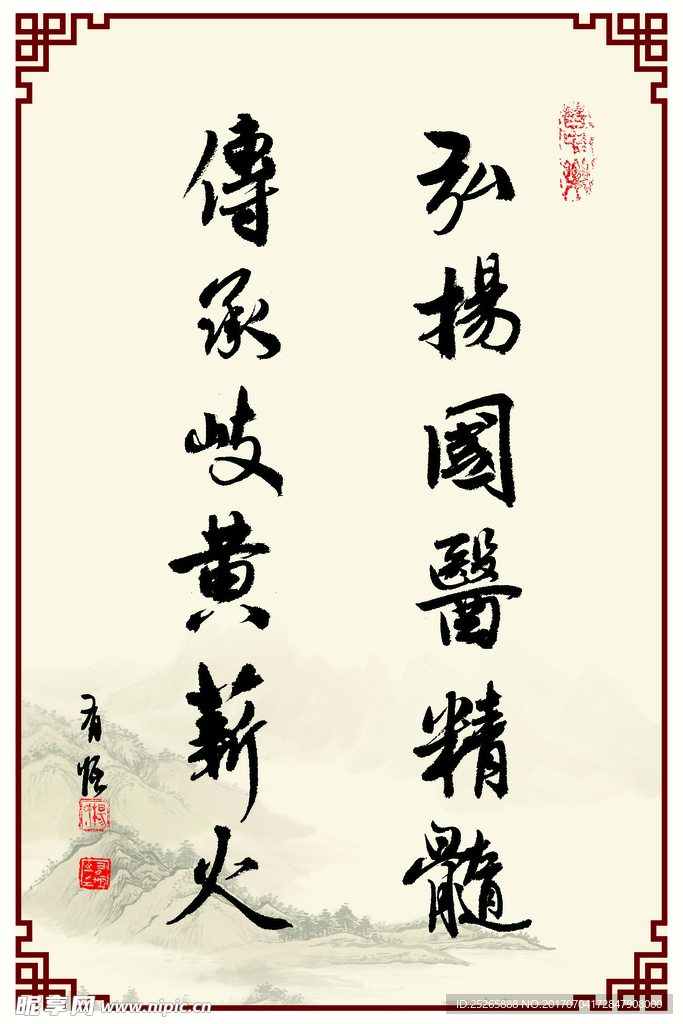 弘揚國醫精髓
傳承岐黄薪火
有恆
昵享网 www.nipic.cn
ID:25265888 NO:20170704172847908000